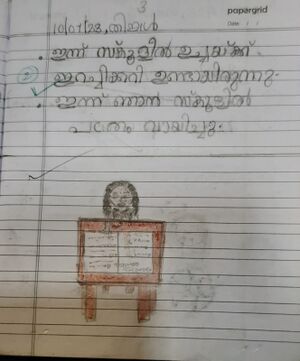 3
papergrid
Date: / /
10/07/23, തിങ്കൾ
• ഇന്ന് സ്കൂളിൽ ഉച്ചയ്ക്ക്
ഇറച്ചിക്കറി ഉണ്ടായിരുന്നു.
• ഇന്ന് ഞാൻ സ്കൂളിൽ
പത്രം വായിച്ചു.